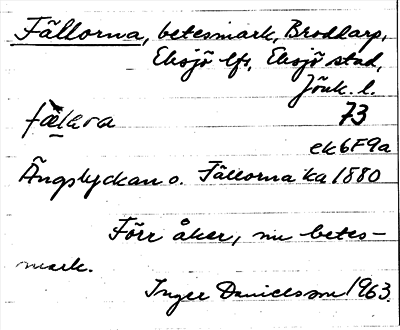 Fällorna, betesmark, Broddarp,
Eksjö lfs, Eksjö stad,
Jönk. l.
73
fælara
ek6F9a
Ängslyckan o. Fällorna ka 1880
Förr åker, nu betes-
mark.
Inger Danielsson 1963.